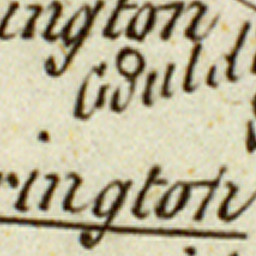 ington
Gould
rington